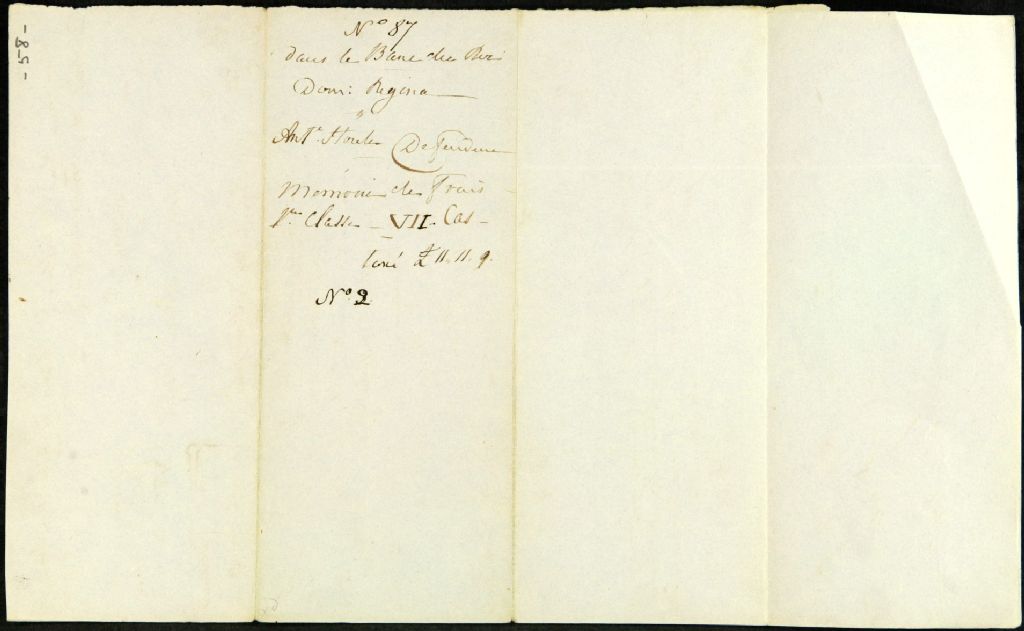 - 58 -
N.º 87
dans le Banc du Roi
Dom: Regina
"
Ant.e Houle Défendeur
Mémoire de Frais
1ère Classe - VII Cas -
Taxé £ 11.11.9.
N.º 2